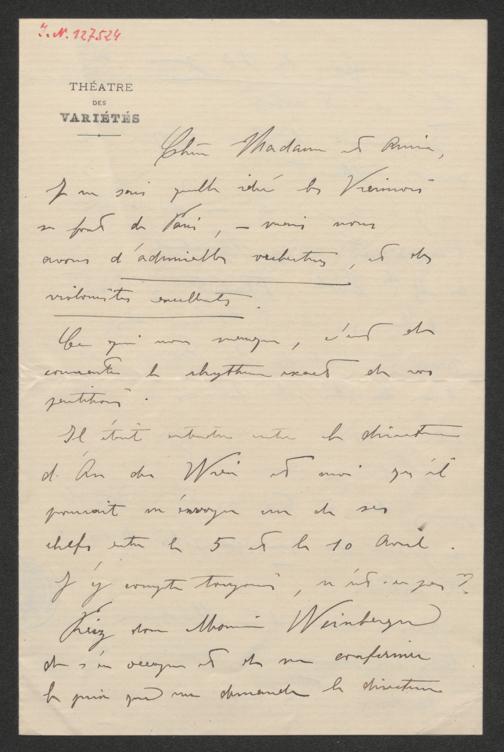 I.N. 127524
THÉATRE
DES
VARIÉTÉS
Chère Madame et Amie,
Je ne sais quelle idée les Viennois
se font de Paris, – mais nous
avons d'admirables orchestres, et des
violonistes excellents.
Ce qui nous manque, c'est de
connaître le rhythme exact de vos
partitions.
Il était entendu entre le directeur
d' An der Wien et moi qu'il
pourrait m'envoyer un de ses
chefs entre le 5 et le 10 Avril.
J'y compte toujours, n'est-ce pas?
Priez donc Monsieur Weinberger
de s'en occuper et de me confirmer
le prix que me demande le directeur